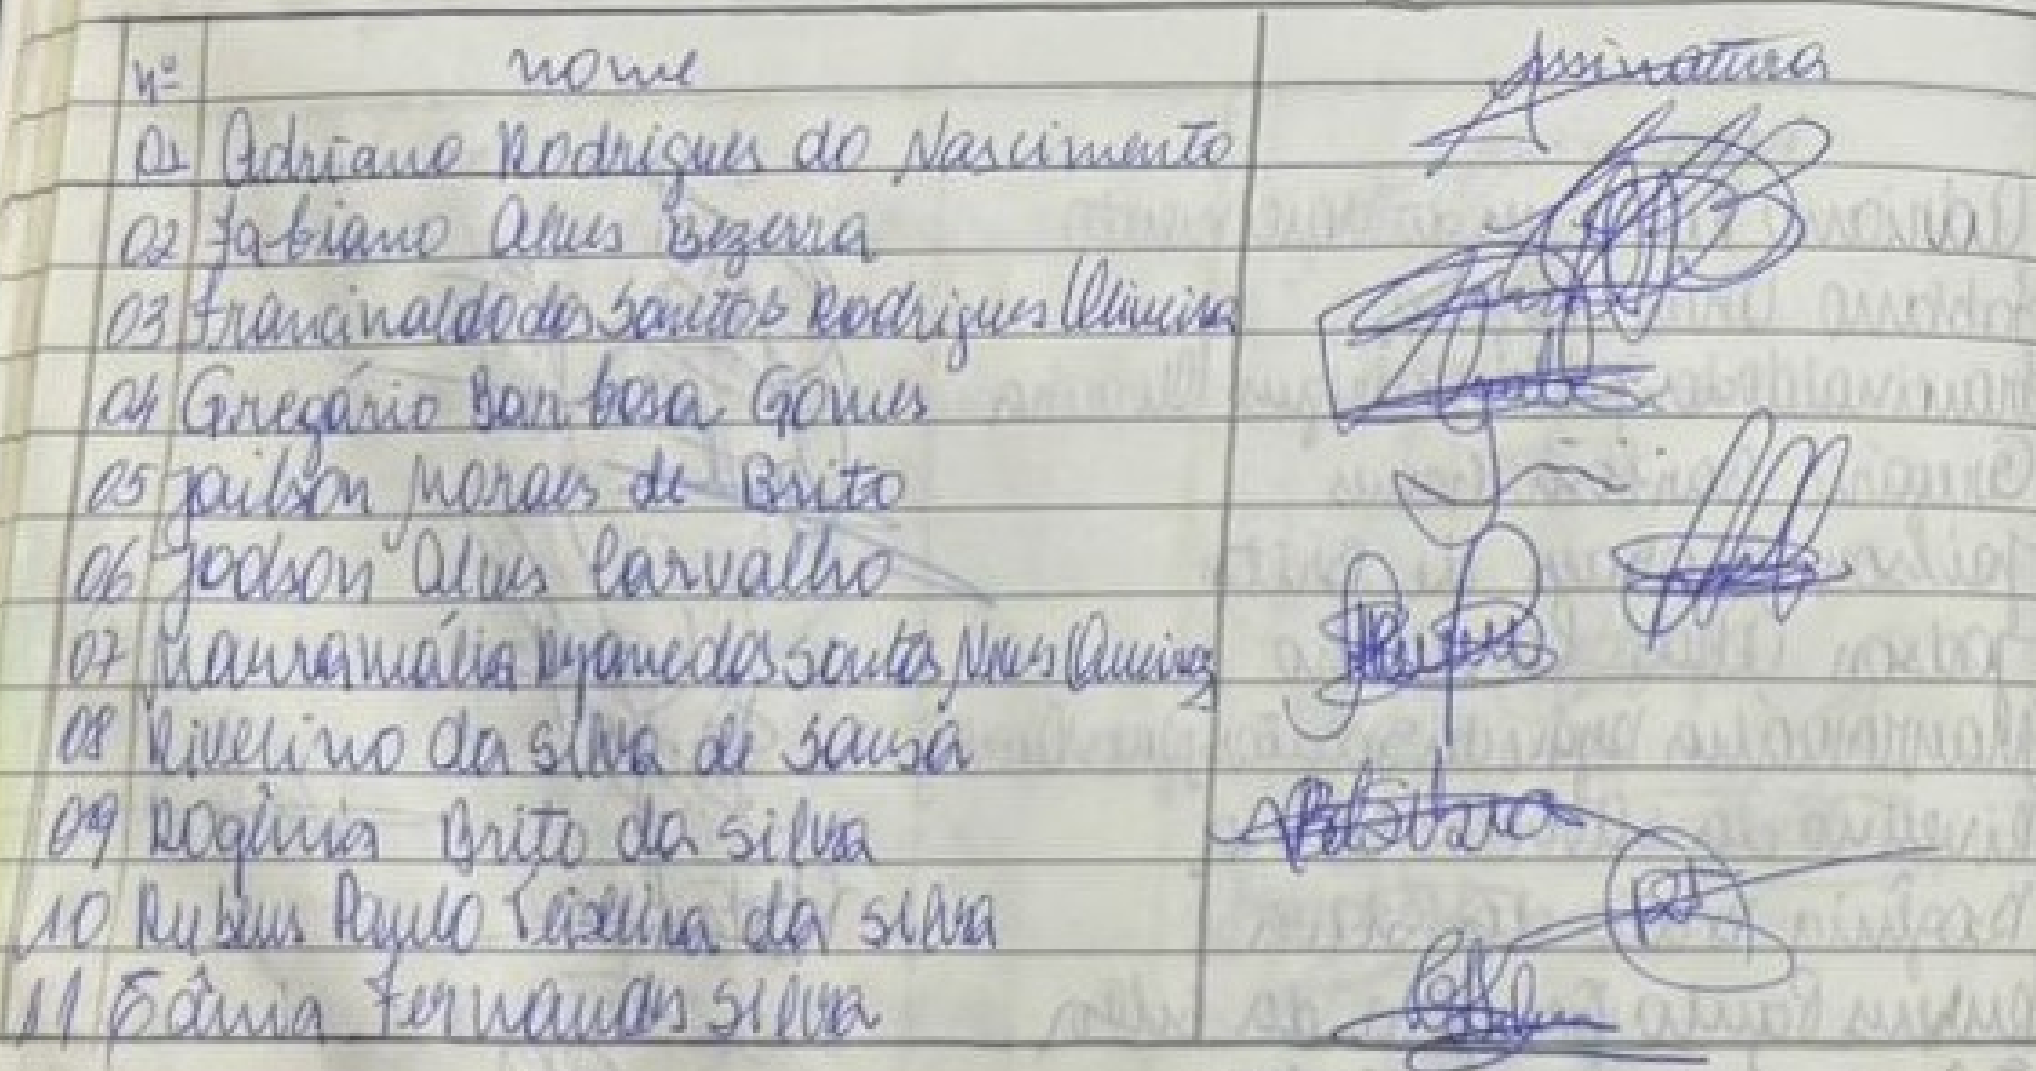 Nº nome Assinatura
01 Adriano Rodrigues do Nascimento
02 Fabiano Alves Bezerra
03 Francinaldo dos Santos Rodrigues Oliveira
04 Gregário Barbosa Gomes
05 Jailson Moraes de Brito
06 Jodson Alves Carvalho
07 dos Santos Neves Queiroz
08 Rivelino da Silva de Sousa
09 Rogênia Brito da Silva
10 Rubens Paulo Teixeira da Silva
11 Tânia Fernandes Silva